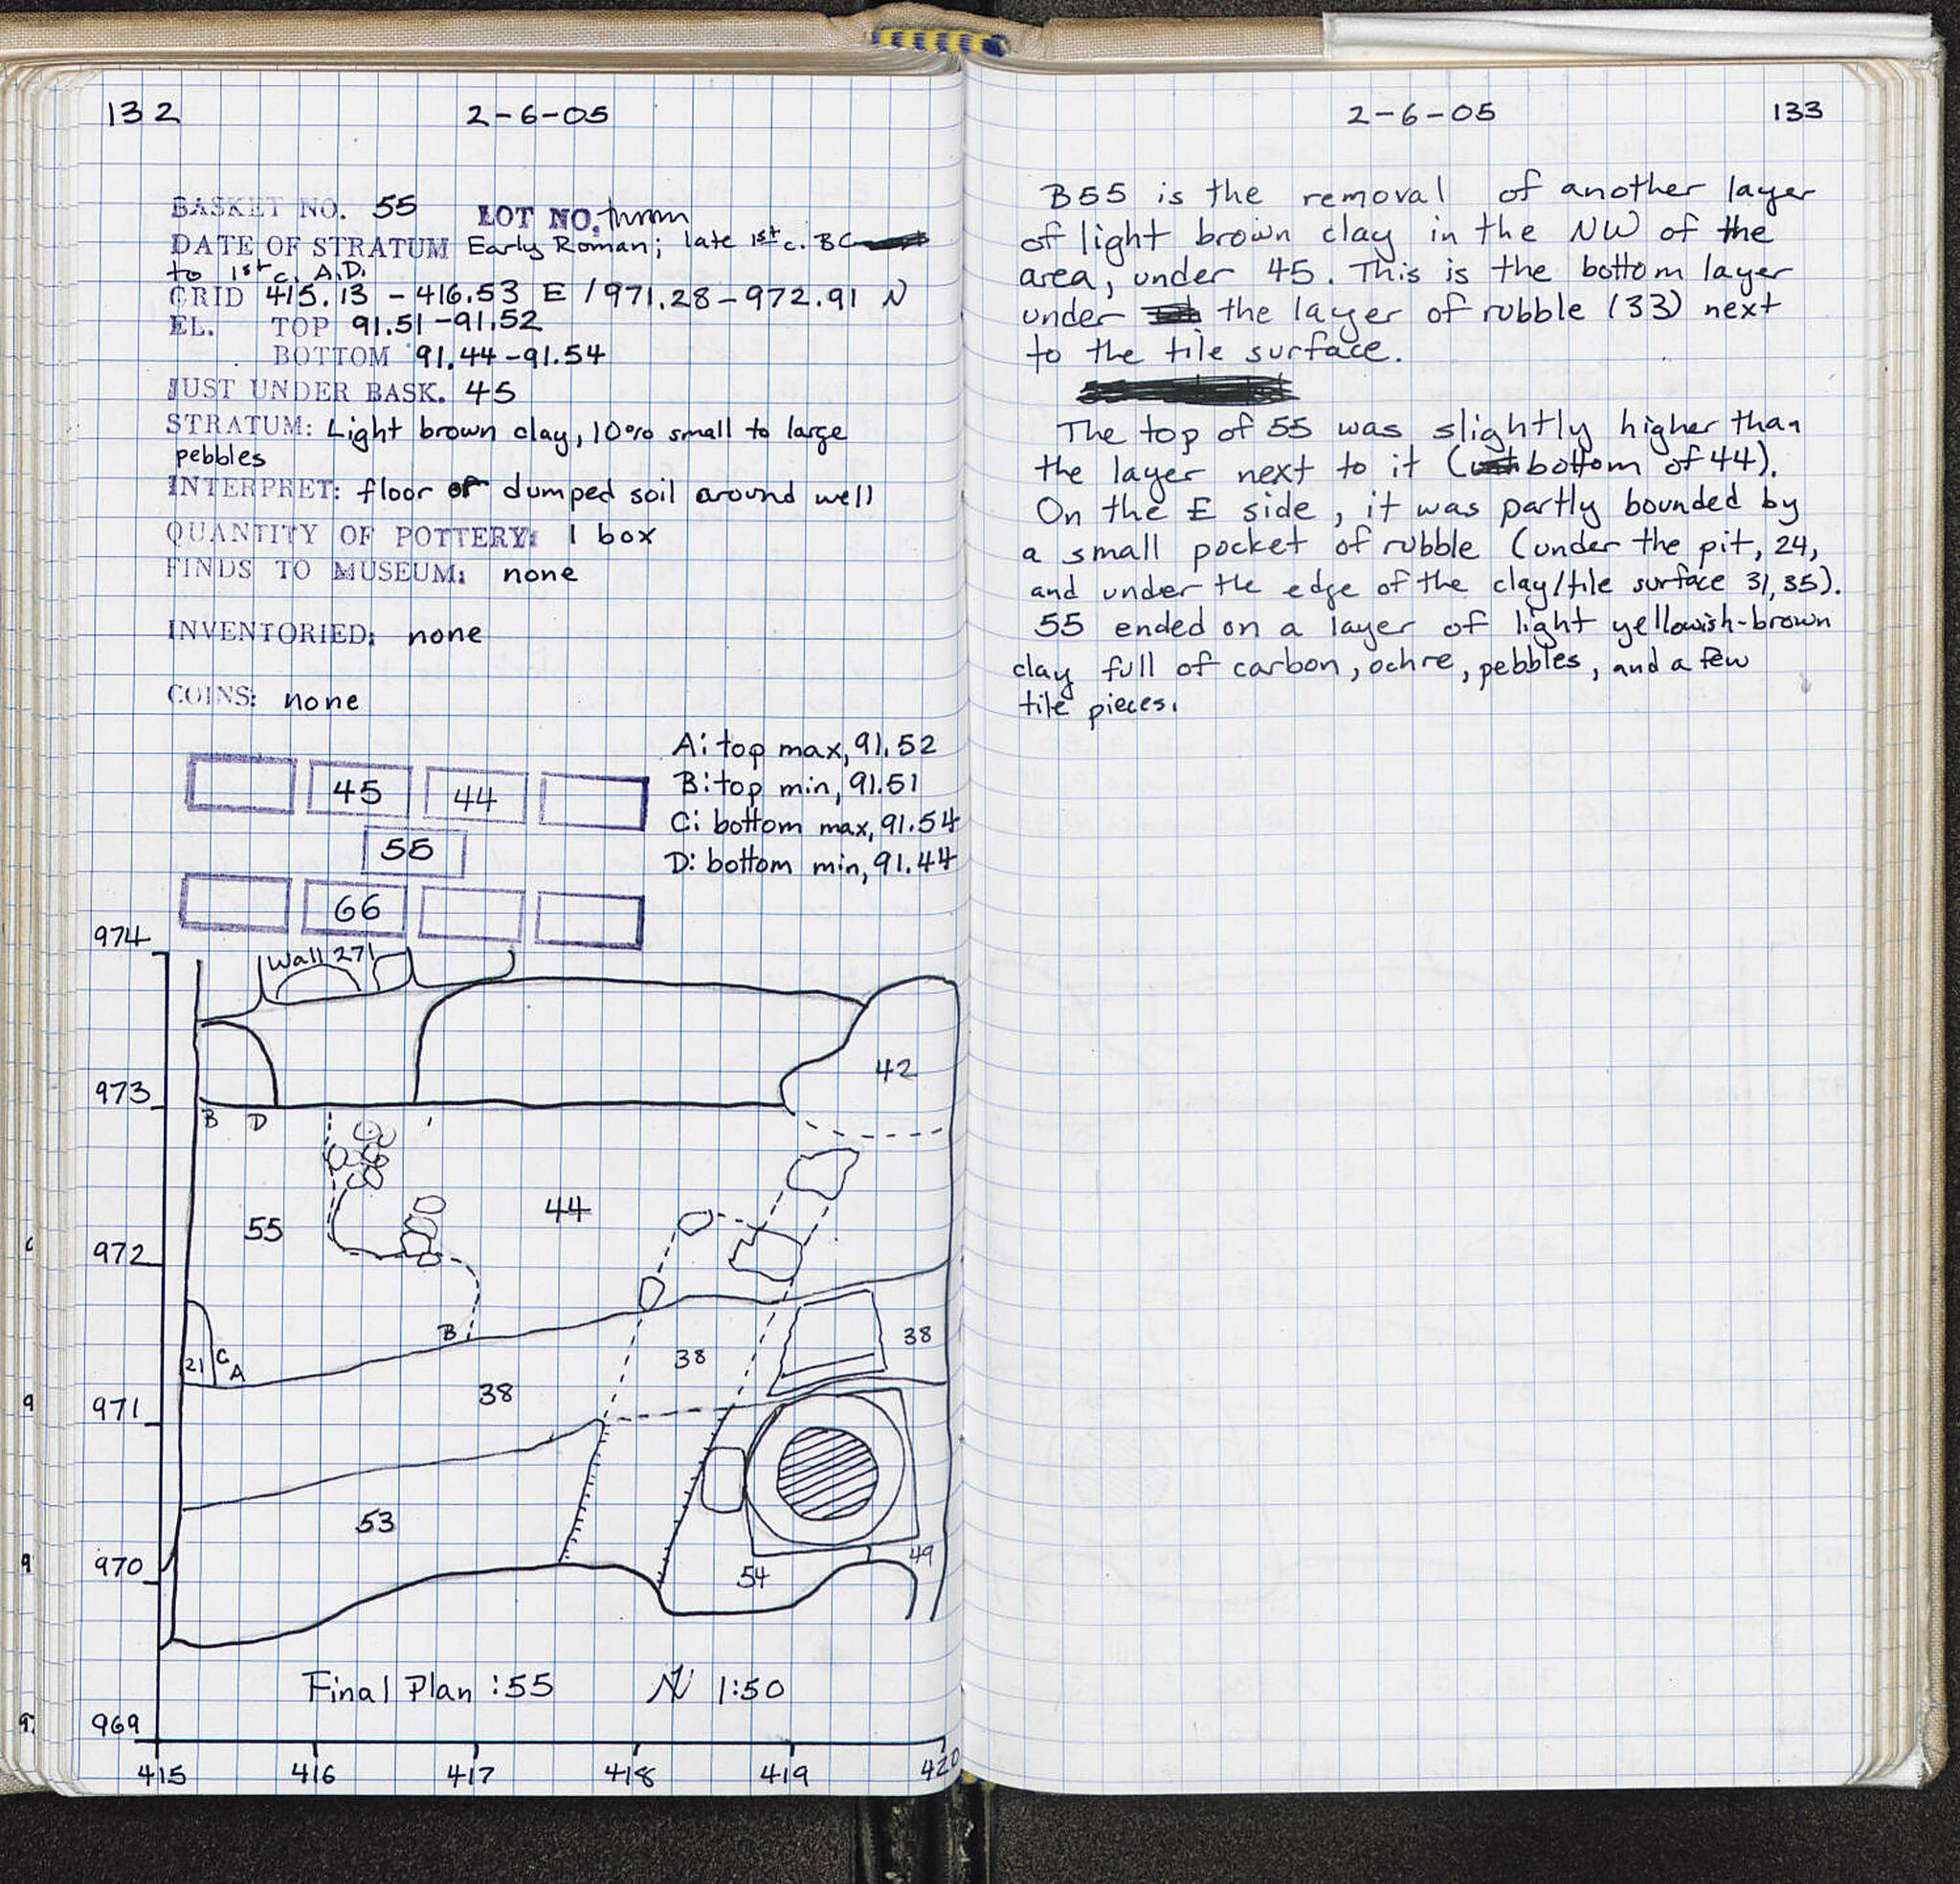 132
2-6-05
BASKET NO. 55 LOT NO.
DATE OF STRATUM Early Roman; late 1st c. BC
to 1st c. A.D.
GRID 415.13 - 416.53 E / 971.28-972.91 N
EL. TOP 91.51-91.52
BOTTOM 91.44-91.54
JUST UNDER BASK. 45
STRATUM: Light brown clay, 10% small to large
pebbles
INTERPRET: floor or dumped soil around well
QUANTITY OF POTTERY: 1 box
FINDS TO MUSEUM: none
INVENTORIED: none
COINS: none
A: top max, 91.52
B: top min, 91.51
C: bottom max, 91.54
D: bottom min, 91.44
45 44
55
66
974
Wall 271
42
973
B D
55
44
972
B
21 C A
38
38
38
971
53
970
54
49
Final Plan : 55 N 1:50
969
415 416 417 418 419 420
2-6-05
133
B55 is the removal of another layer
of light brown clay in the NW of the
area, under 45. This is the bottom layer
under the layer of rubble (33) next
to the tile surface.
The top of 55 was slightly higher than
the layer next to it (bottom of 44).
On the E side, it was partly bounded by
a small pocket of rubble (under the pit, 24,
and under the edge of the clay/tile surface 31, 35).
55 ended on a layer of light yellowish-brown
clay full of carbon, ochre, pebbles, and a few
tile pieces.